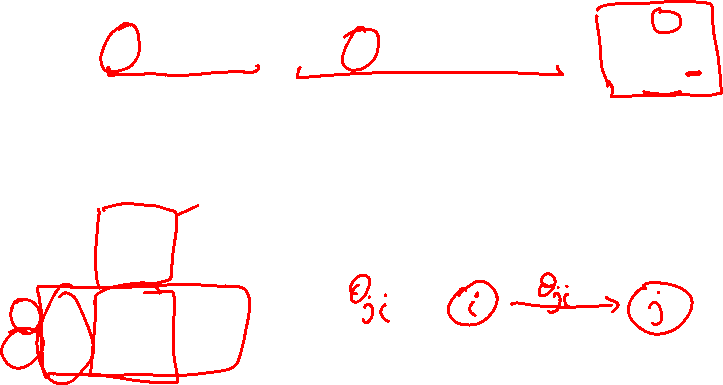 θji i θji j